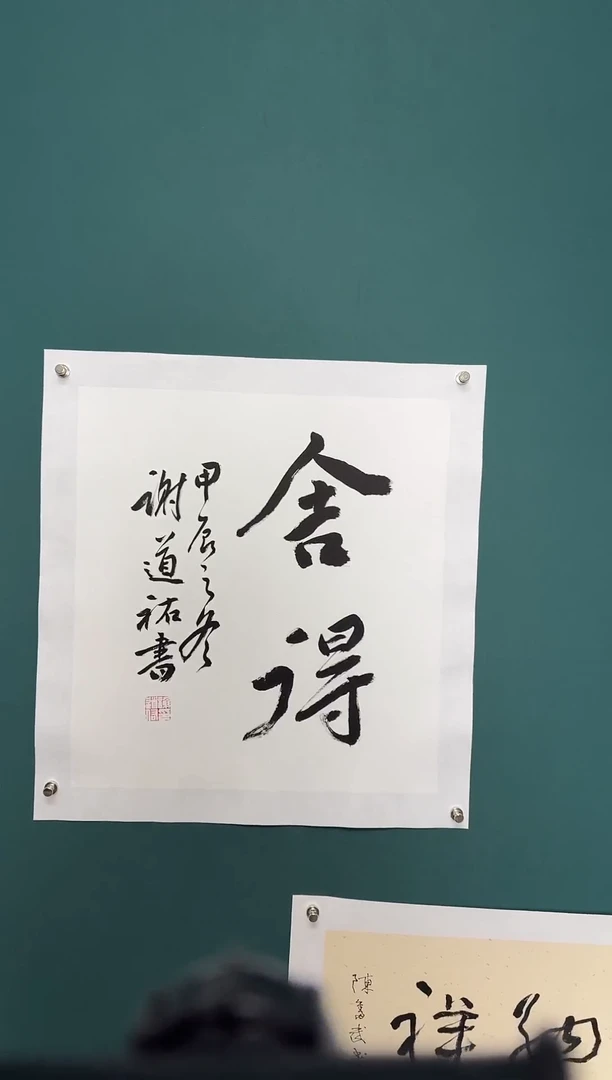 舍得
甲辰之冬
谢道祐書
納祥